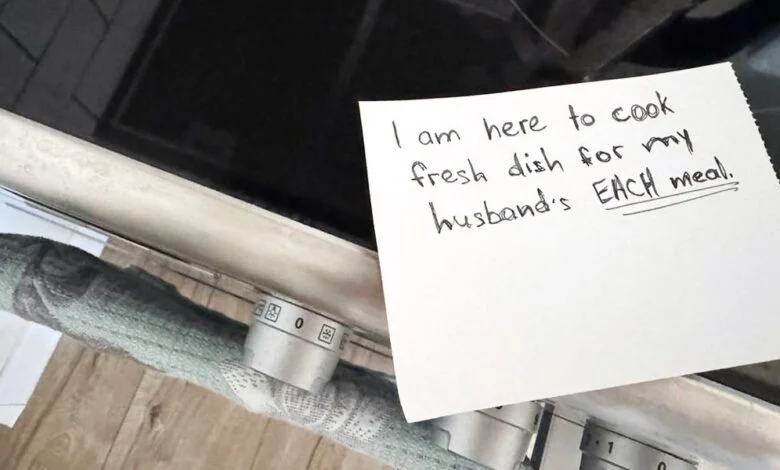 I am here to cook
fresh dish for my
husband's EACH meal.
0
1
0